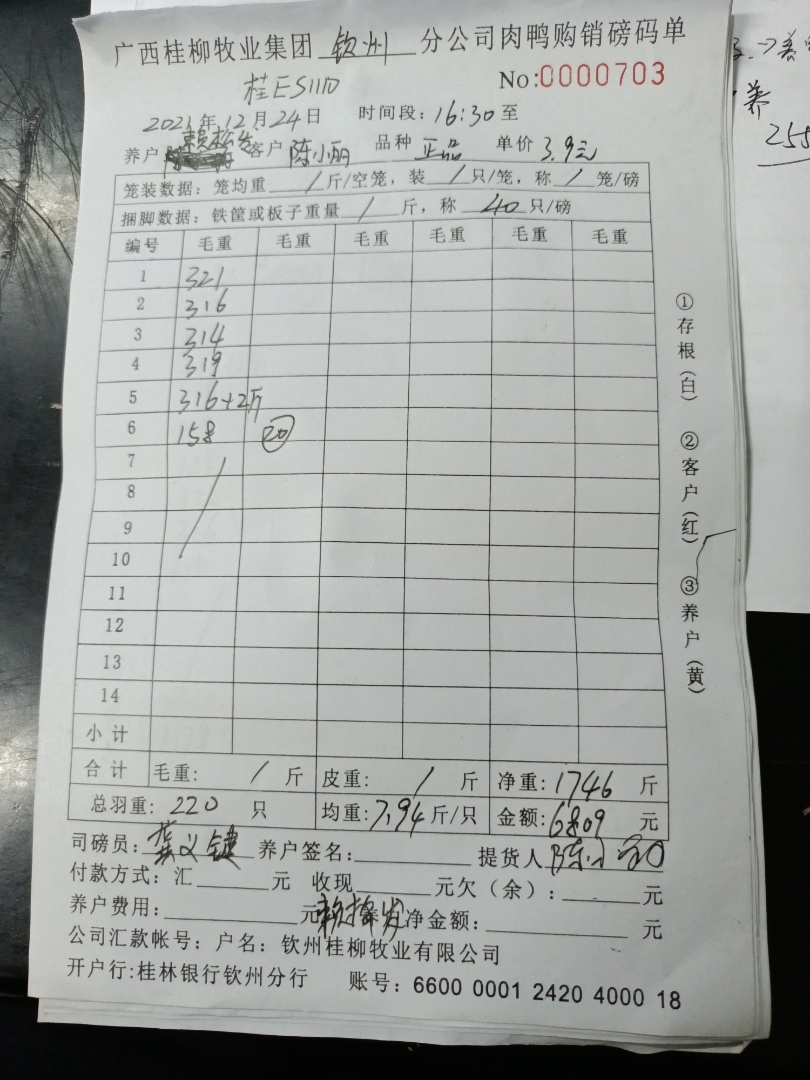 广西桂柳牧业集团 钦州 分公司肉鸭购销磅码单
桂ES1110 No:0000703
2021年12月24日 时间段:16:30至
养户 客户 陈小丽 品种 正品 单价 3.9元
笼装数据:笼均重 / 斤/空笼,装 / 只/笼,称 / 笼/磅
捆脚数据:铁筐或板子重量 / 斤,称 40 只/磅
编号 毛重 毛重 毛重 毛重 毛重 毛重
1 321
2 316
3 314
4 319
5 316+2斤
6 158 20
7
8
9
10
11
12
13
14
小计
合计 毛重: / 斤 皮重: / 斤 净重:1746 斤
总羽重:220 只 均重:7.94斤/只 金额:6809 元
司磅员:龚义键 养户签名: 提货人 陈小丽
付款方式:汇 元 收现 元欠(余): 元
养户费用: 元 养户净金额: 元
公司汇款帐号:户名:钦州桂柳牧业有限公司
开户行:桂林银行钦州分行 账号:6600 0001 2420 4000 18
①存根(白) ②客户(红) ③养户(黄)
养
255